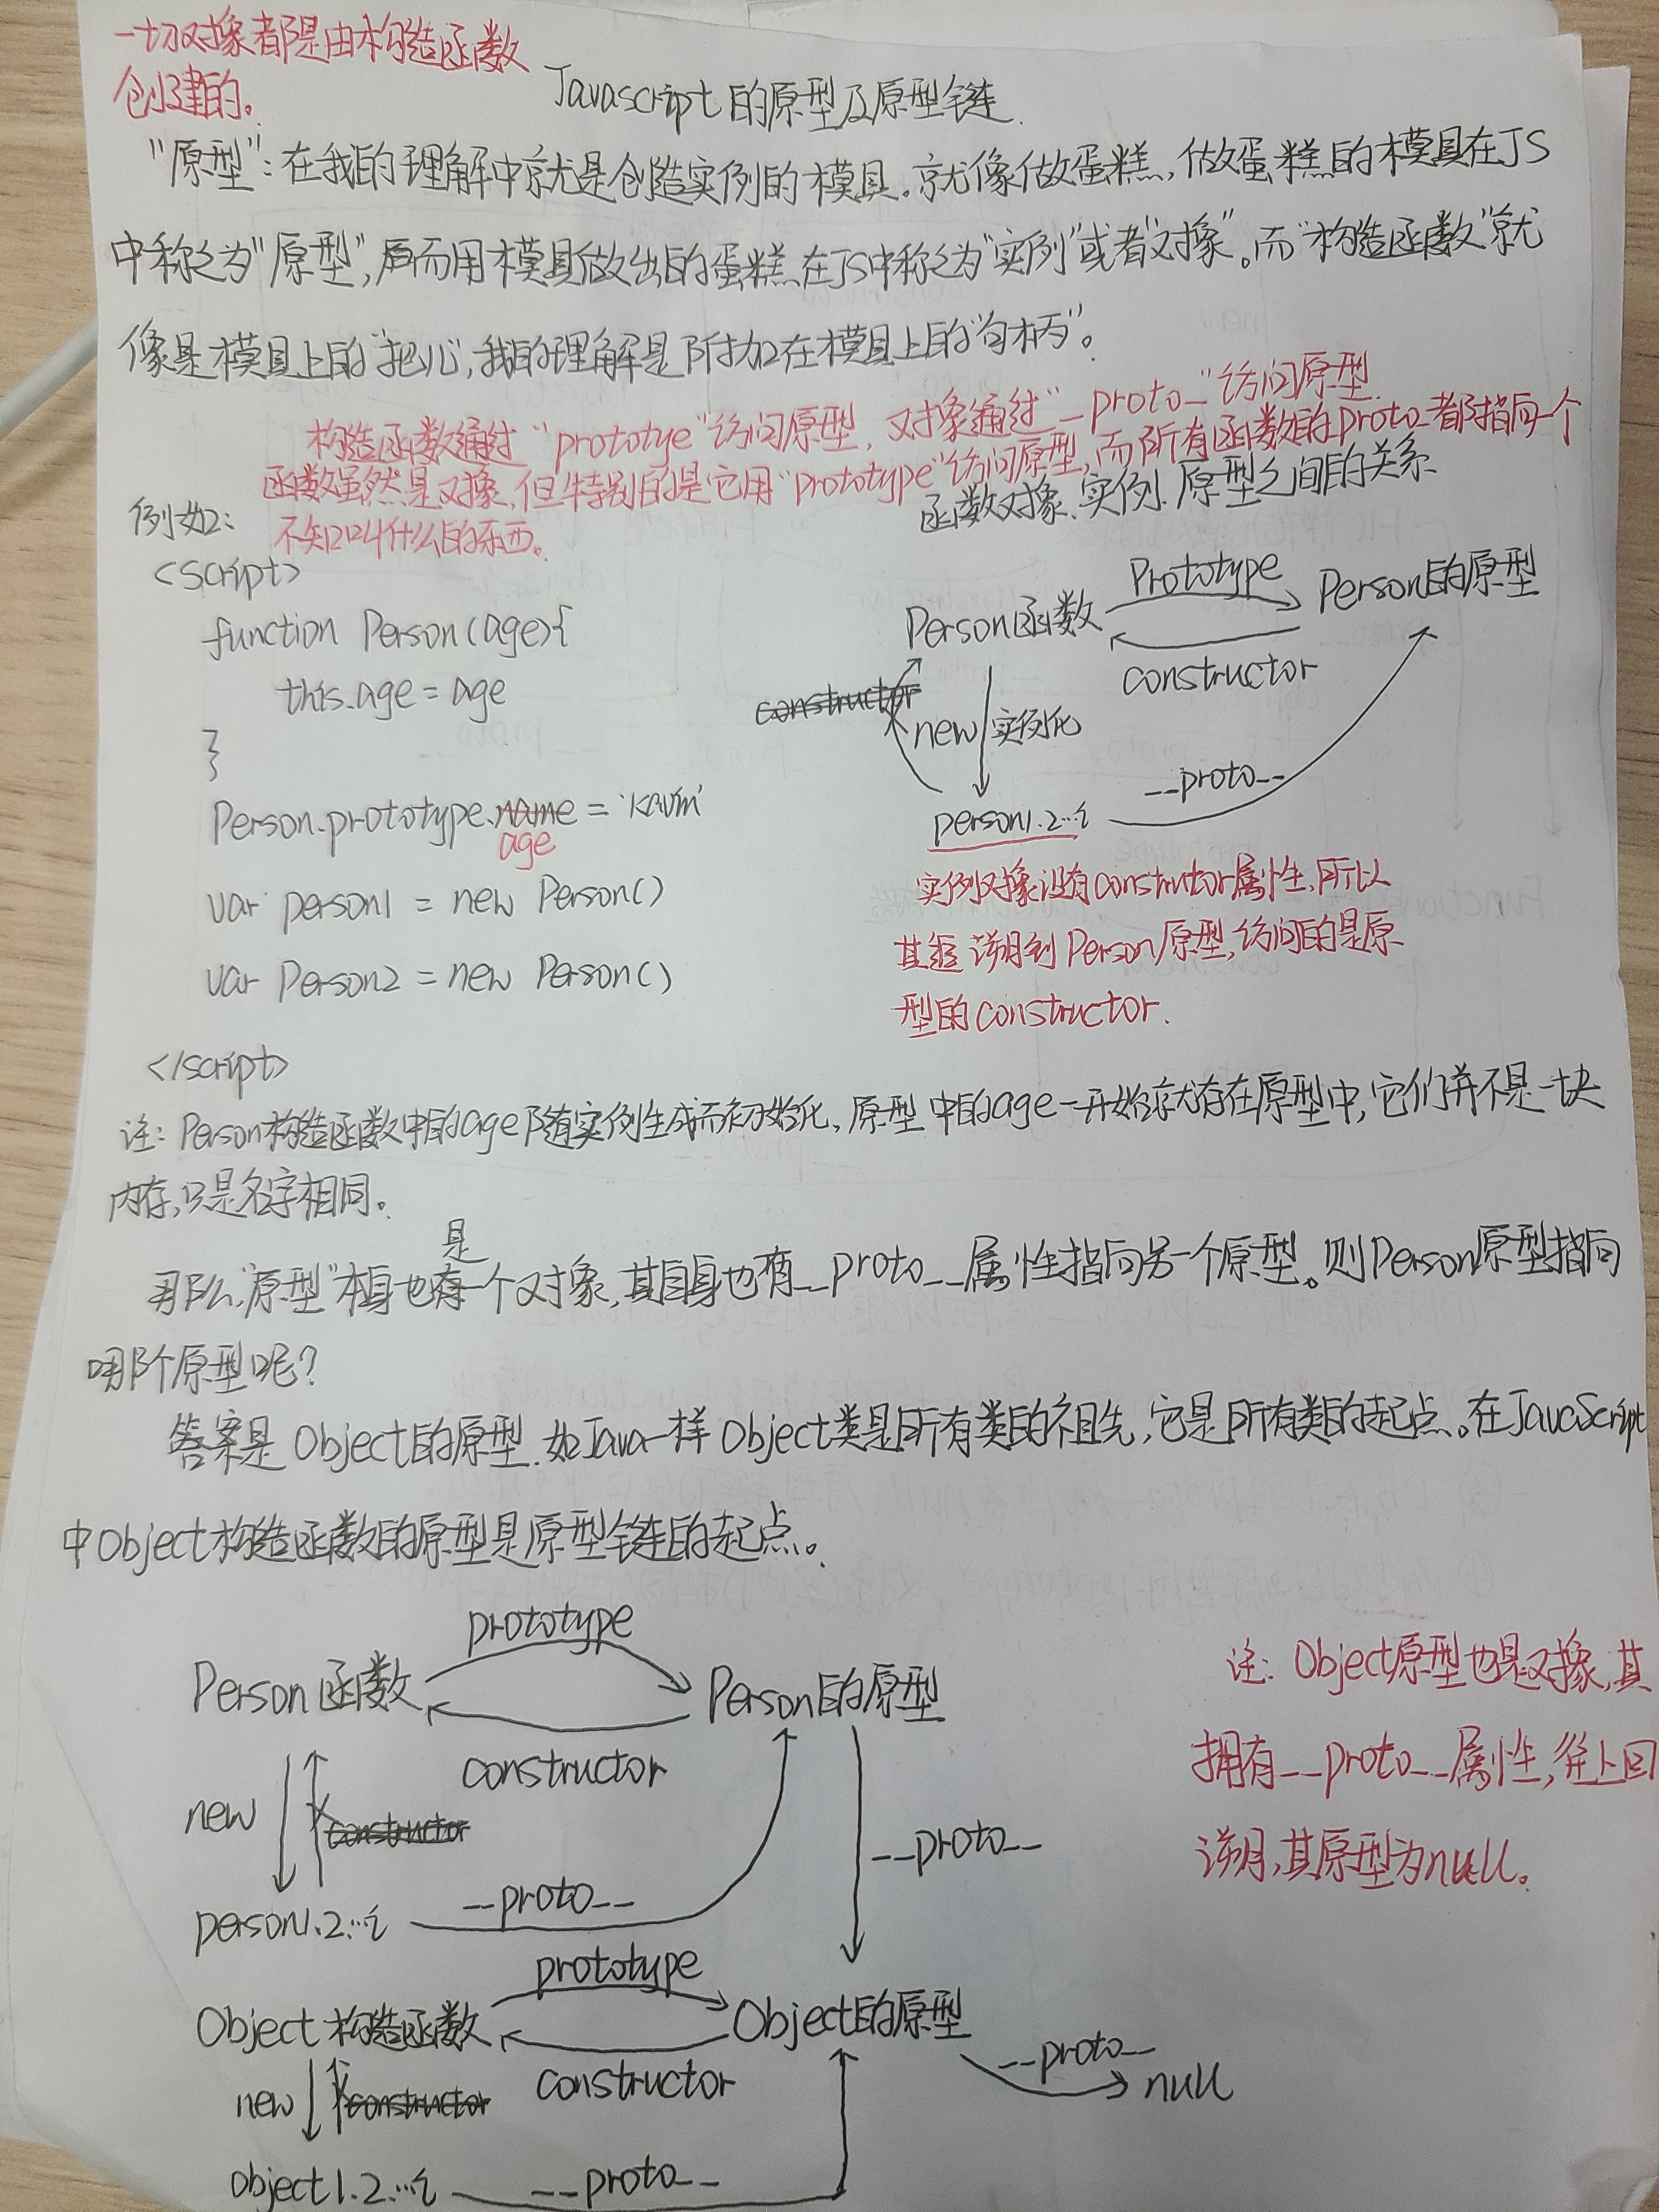 一切对象都是由构造函数
创建的。
Javascript的原型及原型链.
"原型"：在我的理解中就是创造实例的模具。就像做蛋糕，做蛋糕的模具在JS
中称之为"原型"，而用模具做出的蛋糕在JS中称之为"实例"或者"对象"。而"构造函数"就
像是模具上的"把儿"，我的理解是附加在模具上的"勾柄"。
构造函数通过"prototye"访问原型，对象通过"__proto_"访问原型.
函数虽然是对象，但特别的是它用"prototype"访问原型，而所有函数的proto_都指向一个
不知叫什么的东西。
例如：
函数对象、实例、原型之间的关系
<script>
function Person(age){
this.age = age
}
Person.prototype.name = 'kavin'
age
var person1 = new Person()
var Person2 = new Person()
</script>
Person函数
Prototype
Person的原型
constructor
constructor
new
实例化
__proto__
person1.2...i
实例对象没有construtor属性，所以
其追溯到Person原型，访问的是原
型的constructor.
注：Person构造函数中的age随实例生成而初始化，原型中的age一开始就存在原型中，它们并不是一块
内存，只是名字相同。
是
那么，"原型"本身也有一个对象，其自身也有__proto__属性指向另一个原型。则Person原型指向
哪个原型呢？
答案是Object的原型.如Java一样Object类是所有类的祖先，它是所有类的起点。在JavaScript
中Object构造函数的原型是原型链的起点。
prototype
Person函数
Person的原型
constructor
new
constructor
__proto__
person1.2...i
__proto__
注：Object原型也是对象，其
拥有__proto__属性，往上回
溯，其原型为null。
prototype
Object构造函数
Object的原型
constructor
__proto__
null
new
constructor
object1.2...i
__proto__